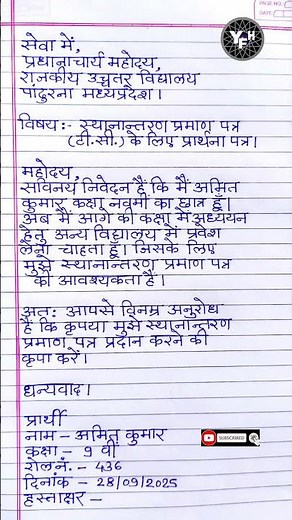 PAGE NO.
DATE
YFH
सेवा में,
प्रधानाचार्य महोदय,
राजकीय उच्चतर विद्यालय
पांढुरना मध्यप्रदेश।
विषय:- स्थानान्तरण प्रमाण पत्र
(टी.सी.) के लिए प्रार्थना पत्र।
महोदय,
सविनय निवेदन है कि मैं अमित
कुमार कक्षा नवमी का छात्र हूँ।
अब मैं आगे की कक्षा में अध्ययन
हेतु अन्य विद्यालय में प्रवेश
लेना चाहता हूँ। जिसके लिए
मुझे स्थानान्तरण प्रमाण पत्र
की आवश्यकता है।
अतः आपसे विनम्र अनुरोध
है कि कृपया मुझे स्थानान्तरण
प्रमाण पत्र प्रदान करने की
कृपा करें।
धन्यवाद।
प्रार्थी
नाम - अमित कुमार
कक्षा - 9 वीं
रोल नं. - 436
दिनांक - 28/09/2025
हस्ताक्षर -
SUBSCRIBED